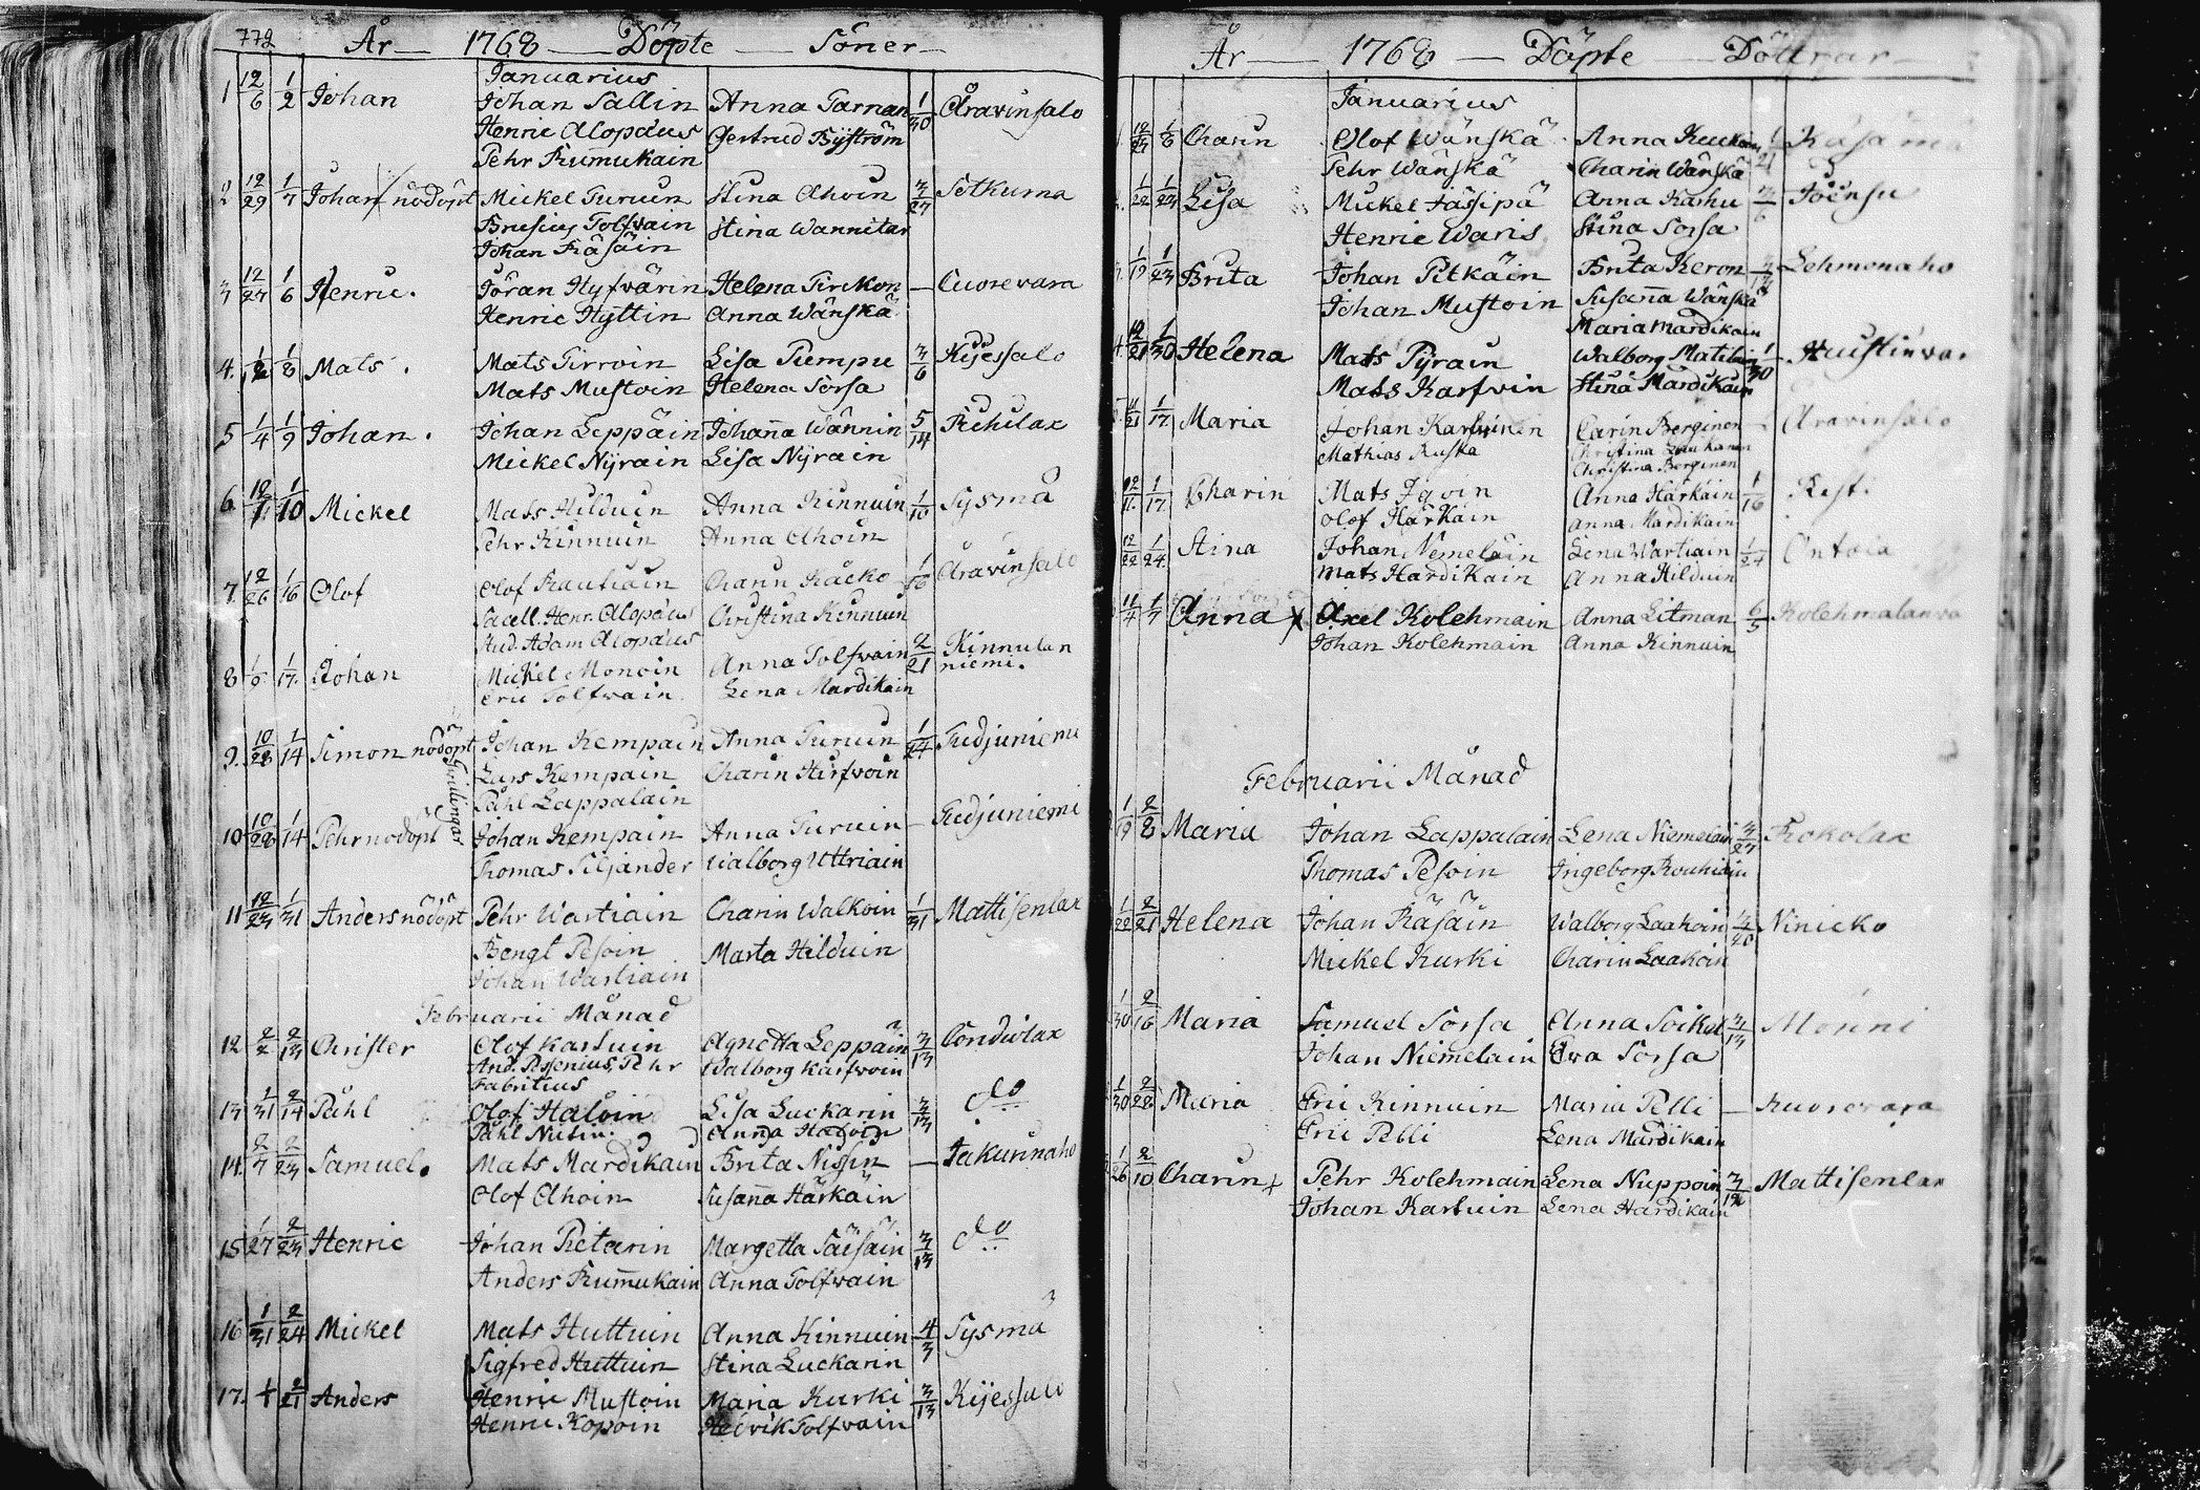 772 År 1768 Döpte Söner
Januarius
1 12/6 1/2 Johan Johan Sallin Anna Tarnan 1/30 Aravinsalo
Henric Alopæus Gertrud Byström
Pehr Rummukain
2 12/29 1/7 Johan nödöpt Mickel Turuin Stina Ahoin 3/27 Sotkuma
Brusius Tolfwain Stina Wannitar
Johan Räsäin
3 12/27 1/6 Henric. Jöran Hyfvärin Helena Pirckon — Cuorevara
Henric Hyttin Anna Wänskä
4. 1/2 1/8 Mats. Mats Pirroin Lisa Pumpu 3/6 Kijessalo
Mats Mustoin Helena Sorsa
5 1/4 1/9 Johan. Johan Leppäin Johanna Wännin 5/14 Puhilax
Mickel Nyräin Lisa Nyräin
6. 12/11 1/10 Mickel Mats Hilduin Anna Kinnuin 1/10 Sysmä
Pehr Kinnuin Anna Ahoin
7. 12/26 1/16 Olof Olof Rautiain Charin Kacko 1/10 Aravinsalo
Sacell. Henr. Alopæus Christina Kinnuin
Stud. Adam Alopæus
8 1/6 1/17. Johan Mickel Monoin Anna Tolfvain 2/21 Kinnulan
niemi.
Eric Tolfwain Lena Mardikain
9. 10/28 1/14 Simon nödöpt Johan Kempain Anna Turuin 1/24 Pudjuniemi
Tvillingar
Lars Kempain Charin Hirfvoin
Påhl Lappalain
10 10/28 1/14 Pehr nödöpt Johan Kempain Anna Turuin — Pudjuniemi
Thomas Siljander Walborg Uttriain
11 12/23 1/31 Anders nödöpt Pehr Wartiain Charin Walkoin 1/31 Mattisenlax
Bengt Pesoin Marta Hilduin
Johan Wartiain
Februarii Månad
12 2/2 2/13 Christer Olof Karfuin Agnetta Leppäin 3/13 Condiolax
And. Pehr Walborg Karfwoin
Fabritius
13 1/31 2/14 Påhl Olof Haloin Lisa Luckarin 3/13 do
Påhl Anna
14. 2/7 2/23 Samuel. Mats Mardikain Brita Nissin — Jakunnaho
Olof Ahoin Susanna Härkäin
15 1/27 2/23 Henric Johan Pietarin Margetta Säisäin 3/13 do
Anders Rummukain Anna Tolfwain
16 1/31 2/24 Mickel Mats Huttuin Anna Kinnuin 4/3 Sysmä
Sigfred Huttuin Stina Luckarin
17. 2/21 Anders Henric Mustoin Maria Kurki 3/13 Kijessalo
Henric Kopoin Hedvik Tolfwain
År 1768 Döpte Döttrar
Januarius
12/27 1/6 Charin Olof Wänskä Anna 1/21
Pehr Wänskä Charin Wänskä
1/22 1/23 Lisa Mickel Jässipä Anna Kashu 3/6 Joensu
Henric Waris Stina Sorsa
1/19 1/23 Brita Johan Pitkäin Brita Keron Lehmonaho
Johan Mustoin Susanna Wänskä
Maria Mardikain
12/21 1/30 Helena Mats Pyräin Walborg Matilain 1/30
Mats Karfvin Stina Mardikain
11/21 1/17 Maria Johan Karfuinen Carin Berginen — Aravinsalo
Mathias Ruska Christina
Christina Berginen
12/11 1/17 Charin Mats Anna Härkäin 1/16
Olof Härkäin Anna Mardikain
12/22 1/24 Stina Johan Nemeläin Lena Wartiain 1/24 Ontola
Mats Hardikain Anna Hilduin
11/4 1/7 Anna Axel Kolehmain Anna Litman 6/5
Johan Kolehmain Anna Kinnuin
Februarii Månad
1/19 2/8 Maria Johan Lappalain Lena Niemeläin 3/27 Rokolax
Thomas Pesoin Ingeborg Rouhiain
1/22 2/21 Helena Johan Räsäin Walborg Laakoin Ninicko
Mickel Kurki Charin Laakoin
1/30 2/16 Maria Samuel Sorsa Anna Soikel 3/13 Mönni
Johan Niemelain Ewa Sorsa
1/30 2/28 Maria Eric Kinnuin Maria Pelli — Kuorevara
Eric Pelli Lena Mardikain
1/26 2/10 Charin Pehr Kolehmain Lena Nuppoin 3/12 Mattisenlax
Johan Karfuin Lena Hardikain